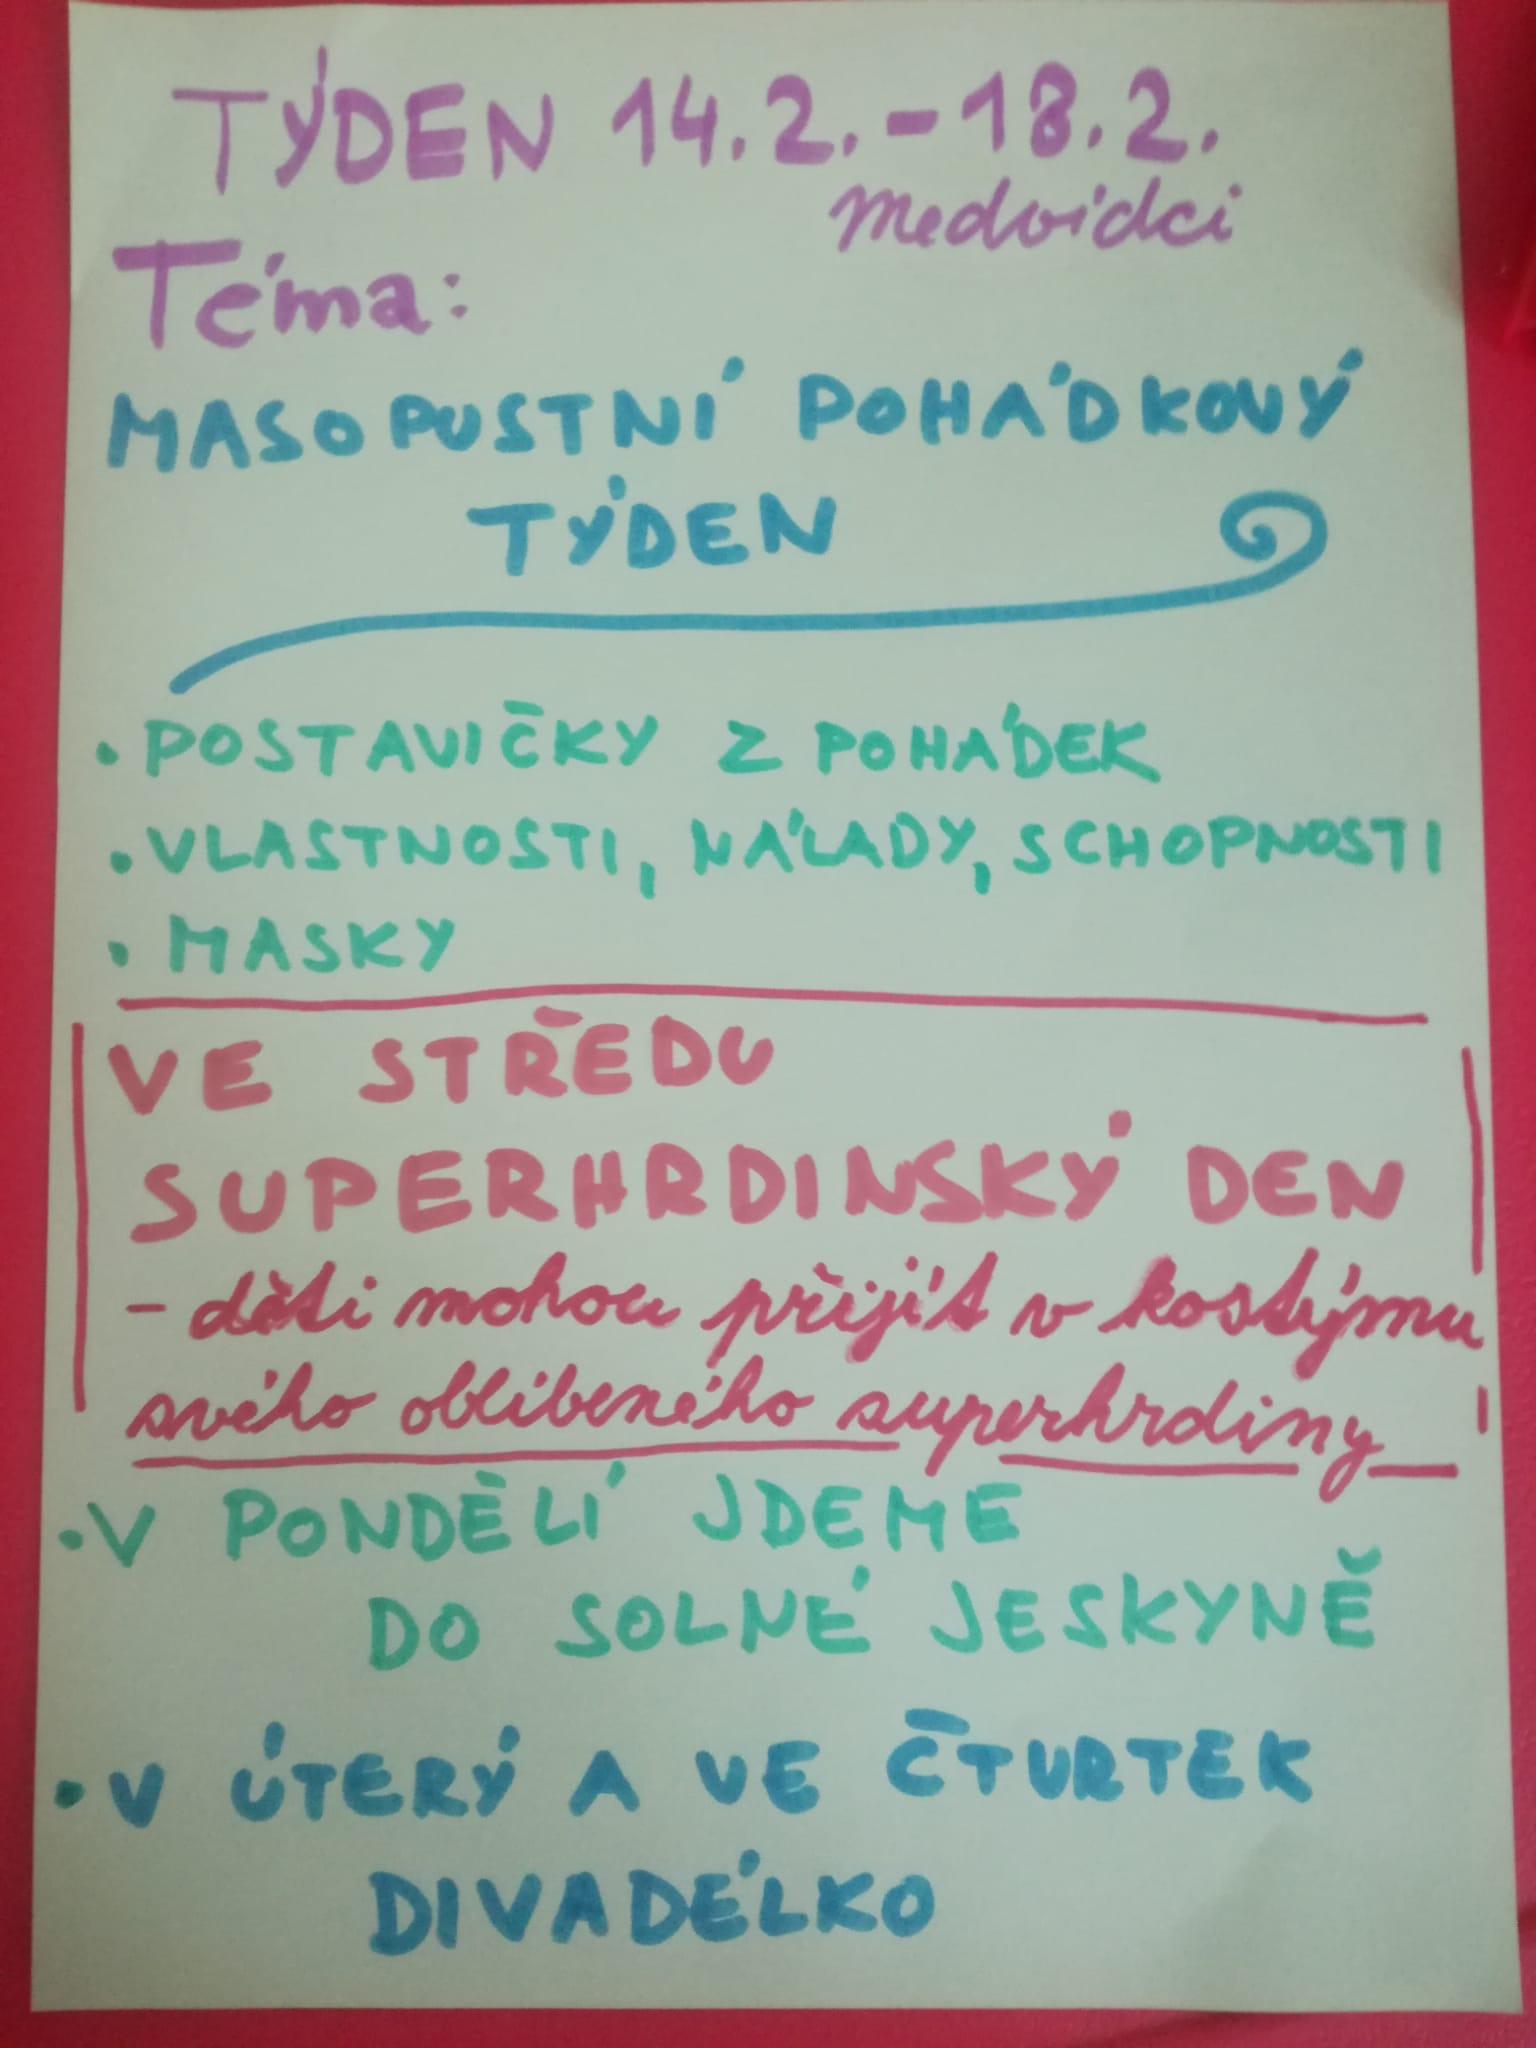 TÝDEN 14.2.-18.2.
Medvídci
Téma:
MASOPUSTNÍ POHÁDKOVÝ
TÝDEN
• POSTAVIČKY Z POHÁDEK
• VLASTNOSTI, NÁLADY, SCHOPNOSTI
• MASKY
VE STŘEDU
SUPERHRDINSKÝ DEN
- děti mohou přijít v kostýmu
svého oblíbeného superhrdiny
• V PONDĚLÍ JDEME
DO SOLNÉ JESKYNĚ
• V ÚTERÝ A VE ČTVRTEK
DIVADÉLKO